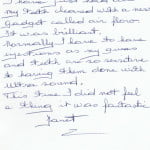 I have just had
my teeth cleaned with a new
gadget called air flow
It was brilliant.
Normally I have to have
injections as my gums
and teeth are so sensitive
to having them done with
ultra sound.
This time I did not feel
a thing it was fantastic
Janet